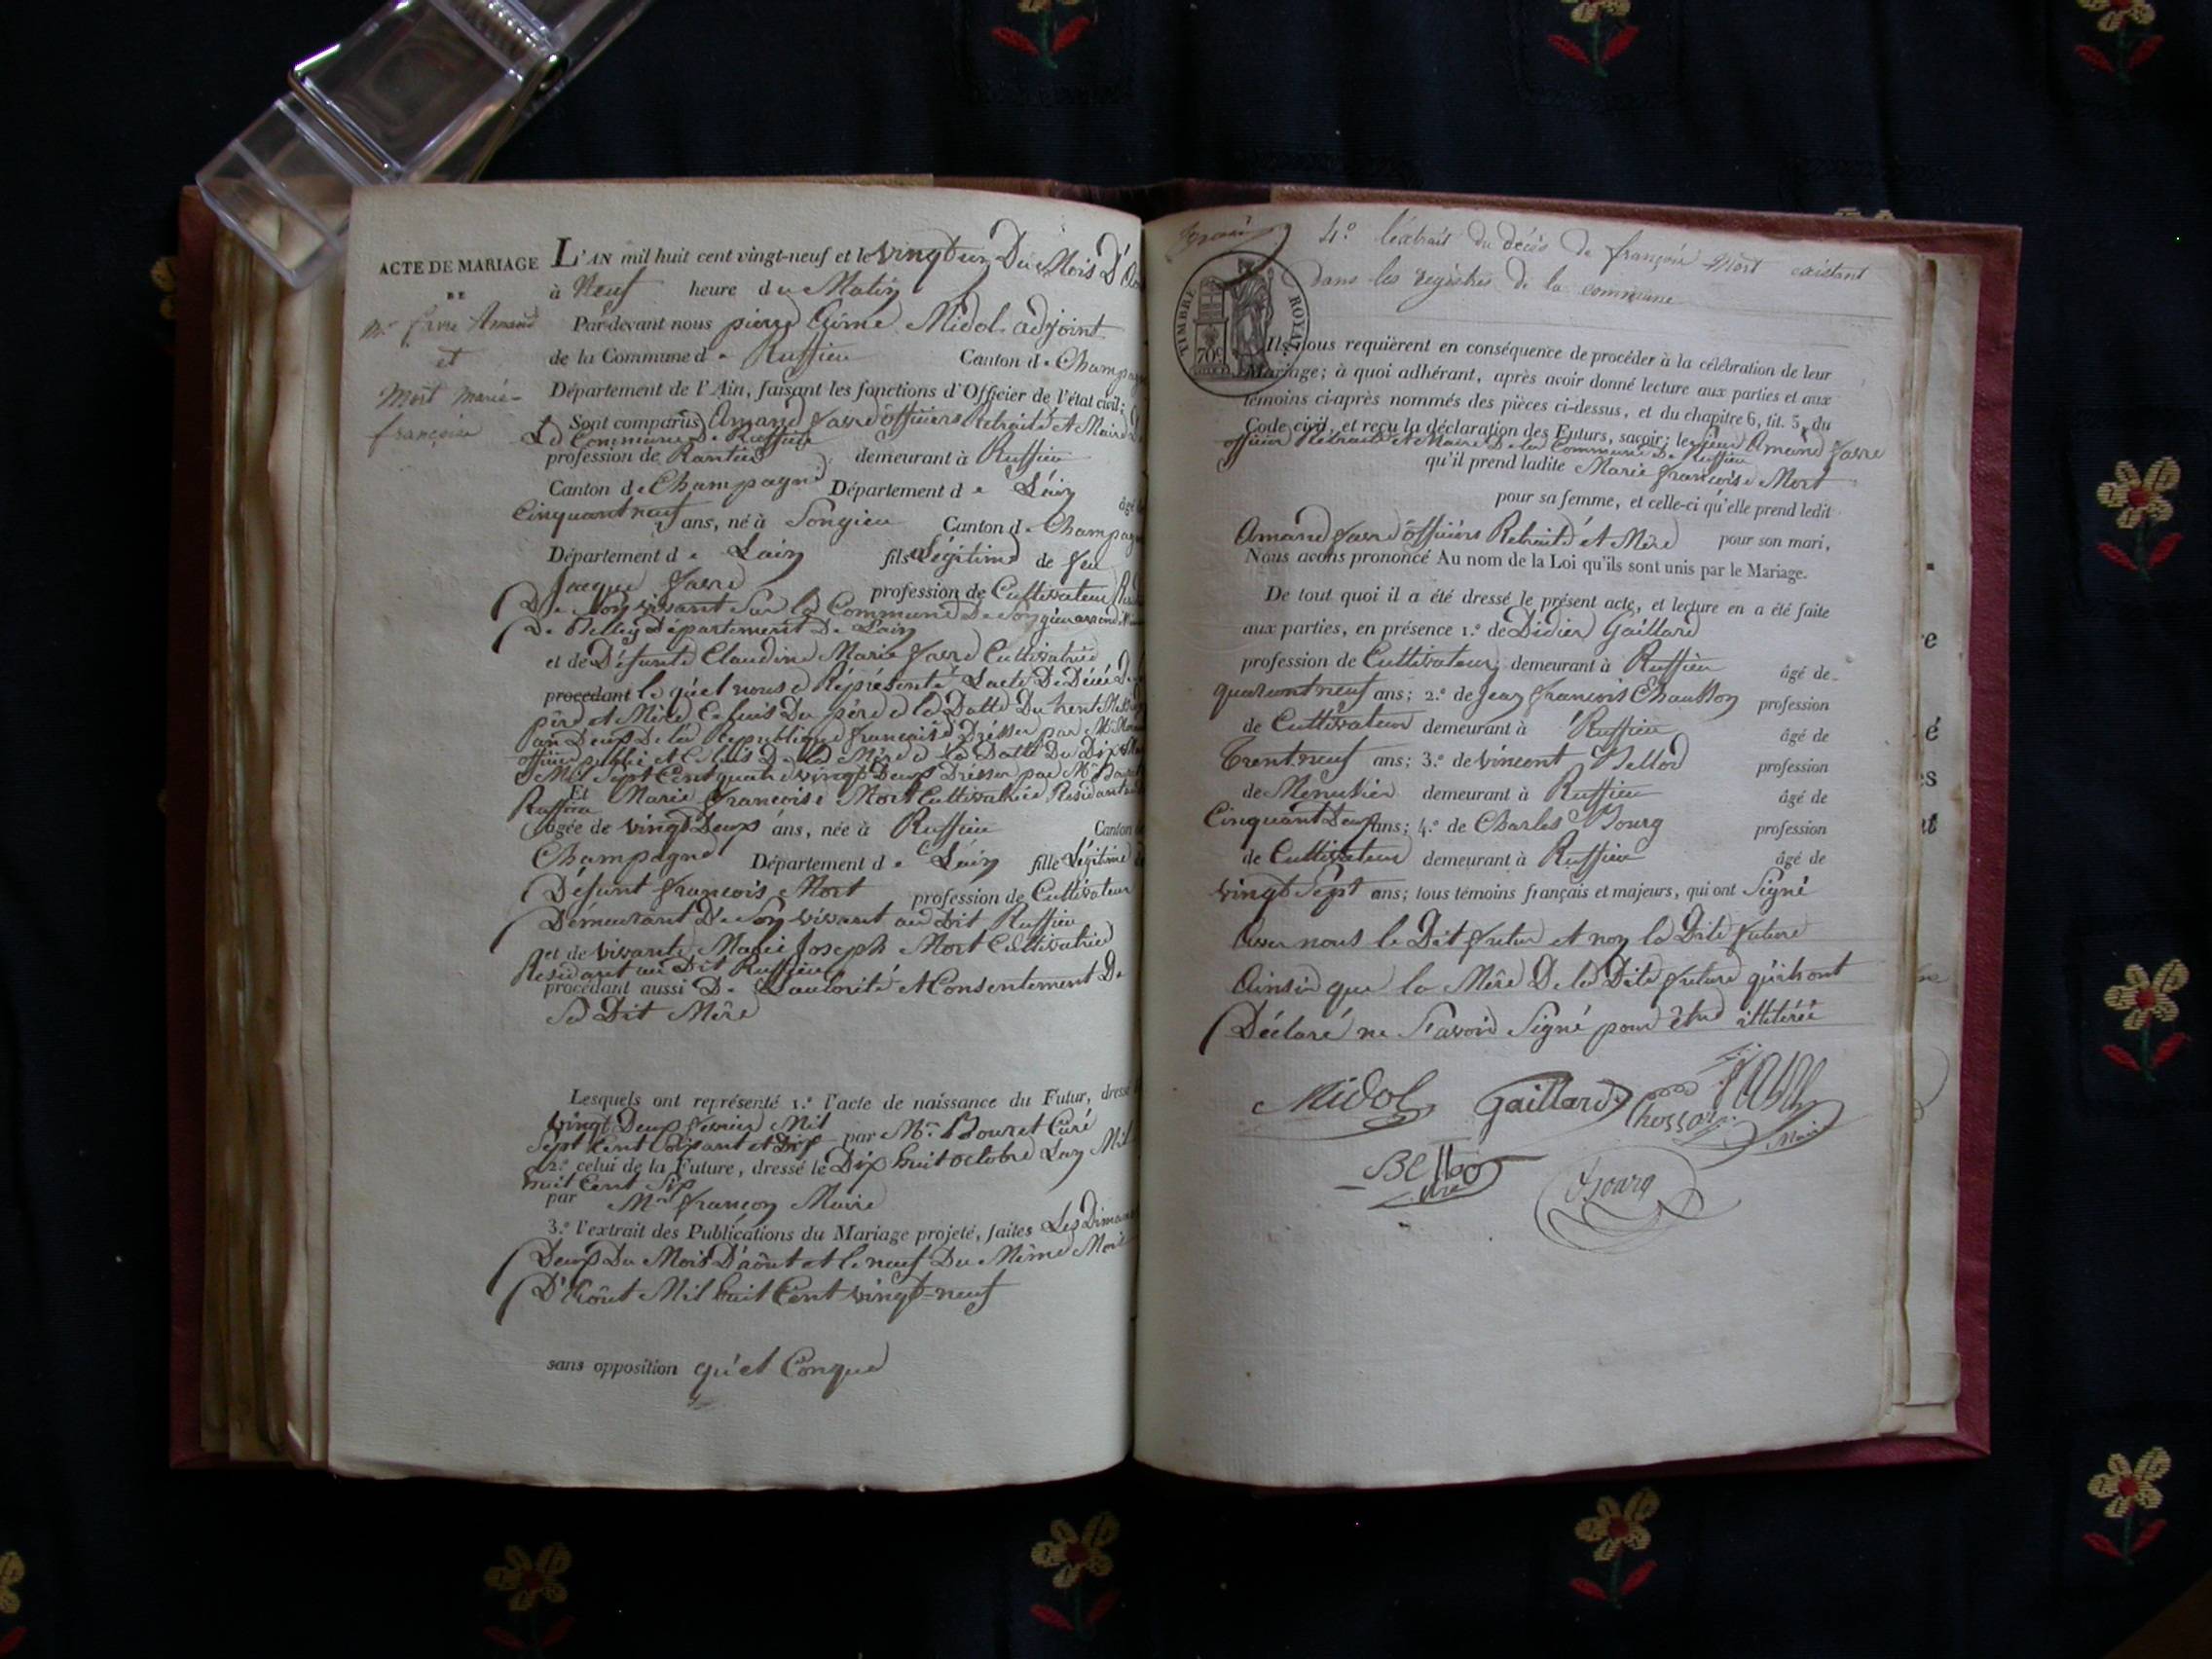 ACTE DE MARIAGE
DE
Mr. favre Amand
et
Mort Marie-
françoise
L'AN mil huit cent vingt-neuf et le vingt un Du Mois D'
à Neuf heure du Matin
Par-devant nous pierre Aimé Midol adjoint
de la Commune de Ruffieu Canton de Champagne
Département de l'Ain, faisant les fonctions d'Officier de l'état civil;
Sont comparus Amand favre officiers Retraité et Maire
La Commune De Ruffieu
profession de Rantier demeurant à Ruffieu
Canton de Champagne Département de Lain âgé
Cinquant neuf ans, né à Songieu Canton de Champagne
Département de Lain fils Légitime de feu
Jacque favre profession de Cultivateur
De Son vivant Sur la Commune De Songieu
De Belley Département De Lain
et de Défunte Claudine Marie favre Cultivatrice
procédant le quel nous a Représenté Lacte De Décé
père et Mère Celuis Du père a la Datte Du trente
an Deux De la Republique francaise Dresser par Mr
officier publié et Celuis De la Mère a la Datte Du Dix
Mil Sept Cent quatre vingt Deux Dresser par Mr
Et Marie francoise Mort Cultivatrice Residante
Ruffieu
âgée de vingt Deux ans, née à Ruffieu Canton
Champagne Département de Lain fille Légitime
Défunt francois Mort profession de Cultivateur
Demeurant De Son vivant au Dit Ruffieu
et de vivante Marie Joseph Mort Cultivatrice
Residant au Dit Ruffieu
procédant aussi De Lautorité et Consentement De
Sa Dit Mère
Lesquels ont représenté 1.º l'acte de naissance du Futur, dressé
vingt Deux fevrier Mil
Sept Cent Soixante et Dix par Mr. Bouret Curé
2.º celui de la Future, dressé le Dix huit octobre Lan Mil
huit Cent Six
par Mr. francon Maire
3.º l'extrait des Publications du Mariage projeté, faites Les Diman
Deux Du Mois D'août et le neuf Du Même Mois
D'Août Mil huit Cent vingt-neuf
sans opposition quel Conque
4.º l'extrait du décès de françois Mort existant
dans les registres de la commune
TIMBRE ROYAL
70c
Ils nous requièrent en conséquence de procéder à la célébration de leur
Mariage; à quoi adhérant, après avoir donné lecture aux parties et aux
témoins ci-après nommés des pièces ci-dessus, et du chapitre 6, tit. 5, du
Code civil, et reçu la déclaration des Futurs, savoir; le sieur Amand favre
officier Retraité et Maire De la Commune De Ruffieu
qu'il prend ladite Marie francoise Mort
pour sa femme, et celle-ci qu'elle prend ledit
Amand favre officiers Retraité et Mère pour son mari,
Nous avons prononcé Au nom de la Loi qu'ils sont unis par le Mariage.
De tout quoi il a été dressé le présent acte, et lecture en a été faite
aux parties, en présence 1.º de Didier Gaillard
profession de Cultivateur demeurant à Ruffieu âgé de
quarant neuf ans; 2.º de Jean francois Chausson profession
de Cultivateur demeurant à Ruffieu âgé de
Trent neuf ans; 3.º de vincent Bellod profession
de Menusier demeurant à Ruffieu âgé de
Cinquant Deux ans; 4.º de Charles Bourg profession
de Cultivateur demeurant à Ruffieu âgé de
vingt Sept ans; tous témoins français et majeurs, qui ont Signé
Avec nous le Dit futur et non la Dite future
Ainsi que la Mère De la Dite future qu'ils ont
Déclaré ne Savoir Signé pour être illitérée
Midol Gaillard
Maire
Bellod
Bourg